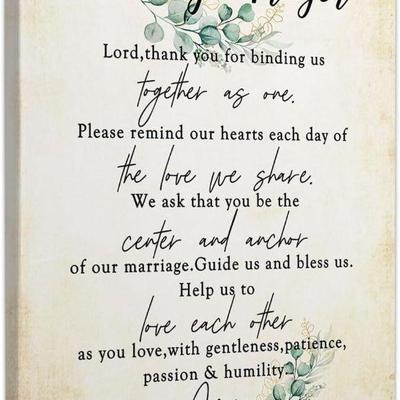 Lord,thank you for binding us
together as one.
Please remind our hearts each day of
the love we share.
We ask that you be the
center and anchor
of our marriage.Guide us and bless us.
Help us to
love each other
as you love,with gentleness,patience,
passion & humility.